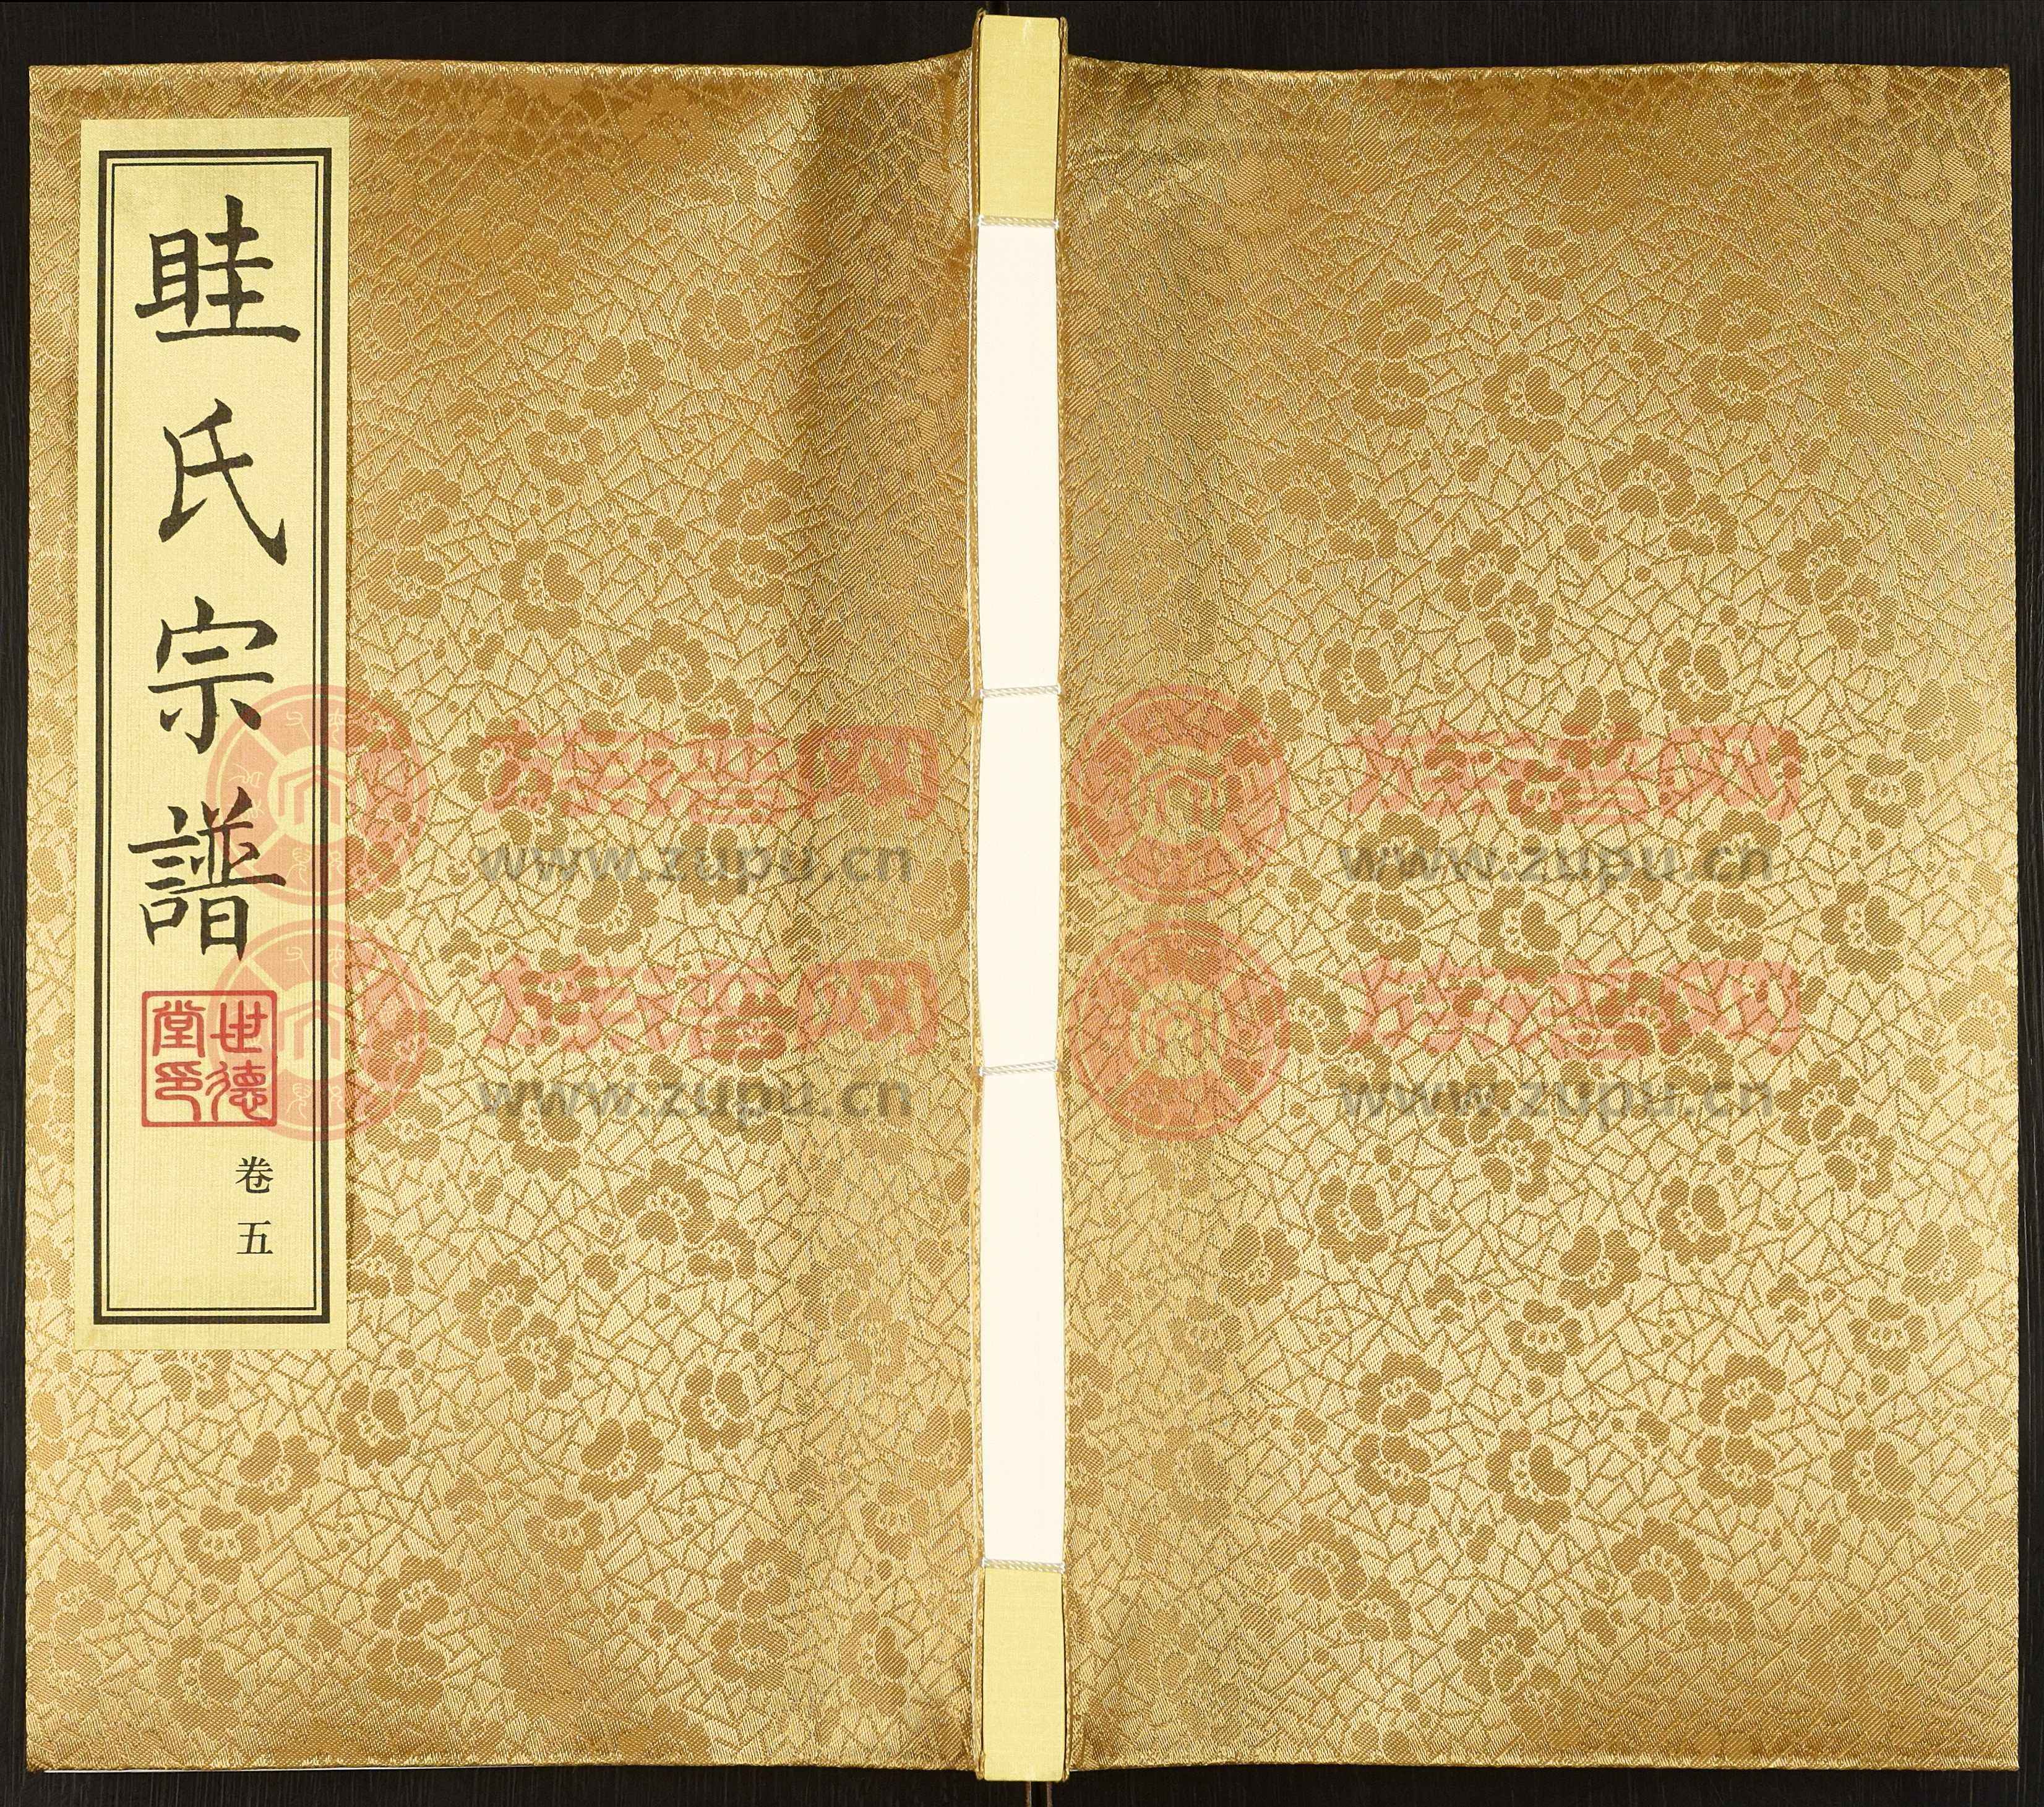 眭氏宗譜
世德堂印
卷五
族谱网
www.zupu.cn
族谱网
www.zupu.cn
族谱网
www.zupu.cn
族谱网
www.zupu.cn